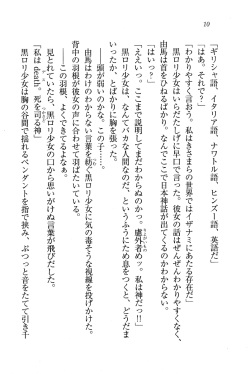 10
「ギリシャ語、イタリア語、ナワトル語、ヒンズー語、英語だ」
「はあ。それで？」
「わかりやすく言おう。私はきさまらの世界ではイザナミにあたる存在だ」
黒ロリ少女はいらだたしげに早口で言った。彼女の話はぜんぜんわかりかねたが、
由馬が首をひねったのは、なんでここで日本神話が出てくるのかわからない。
「はいっ？」
「ええいっ。ここまで説明してまだわからぬのかっ。慮外者めッ。私は神だっ!!」
黒ロリ少女は、なんてバカな人間なのだ、とばかりにため息をつくと、どうだま
――頭が弱いのかな。この子……。
由馬はわけのわからない言葉を紡ぐ黒ロリ少女に気の毒そうな視線を投げかけた。
背中の羽根が彼女の声に合わせて羽ばたいている。
――この羽根、よくできてるなぁ。
見とれていたら、黒ロリ少女の口から思いがけぬ言葉が飛びだした。
「私はdeath。死を司る神」
黒ロリ少女は胸の谷間で揺れるペンダントを指で挟み、ぷつっと音をたてて引き千